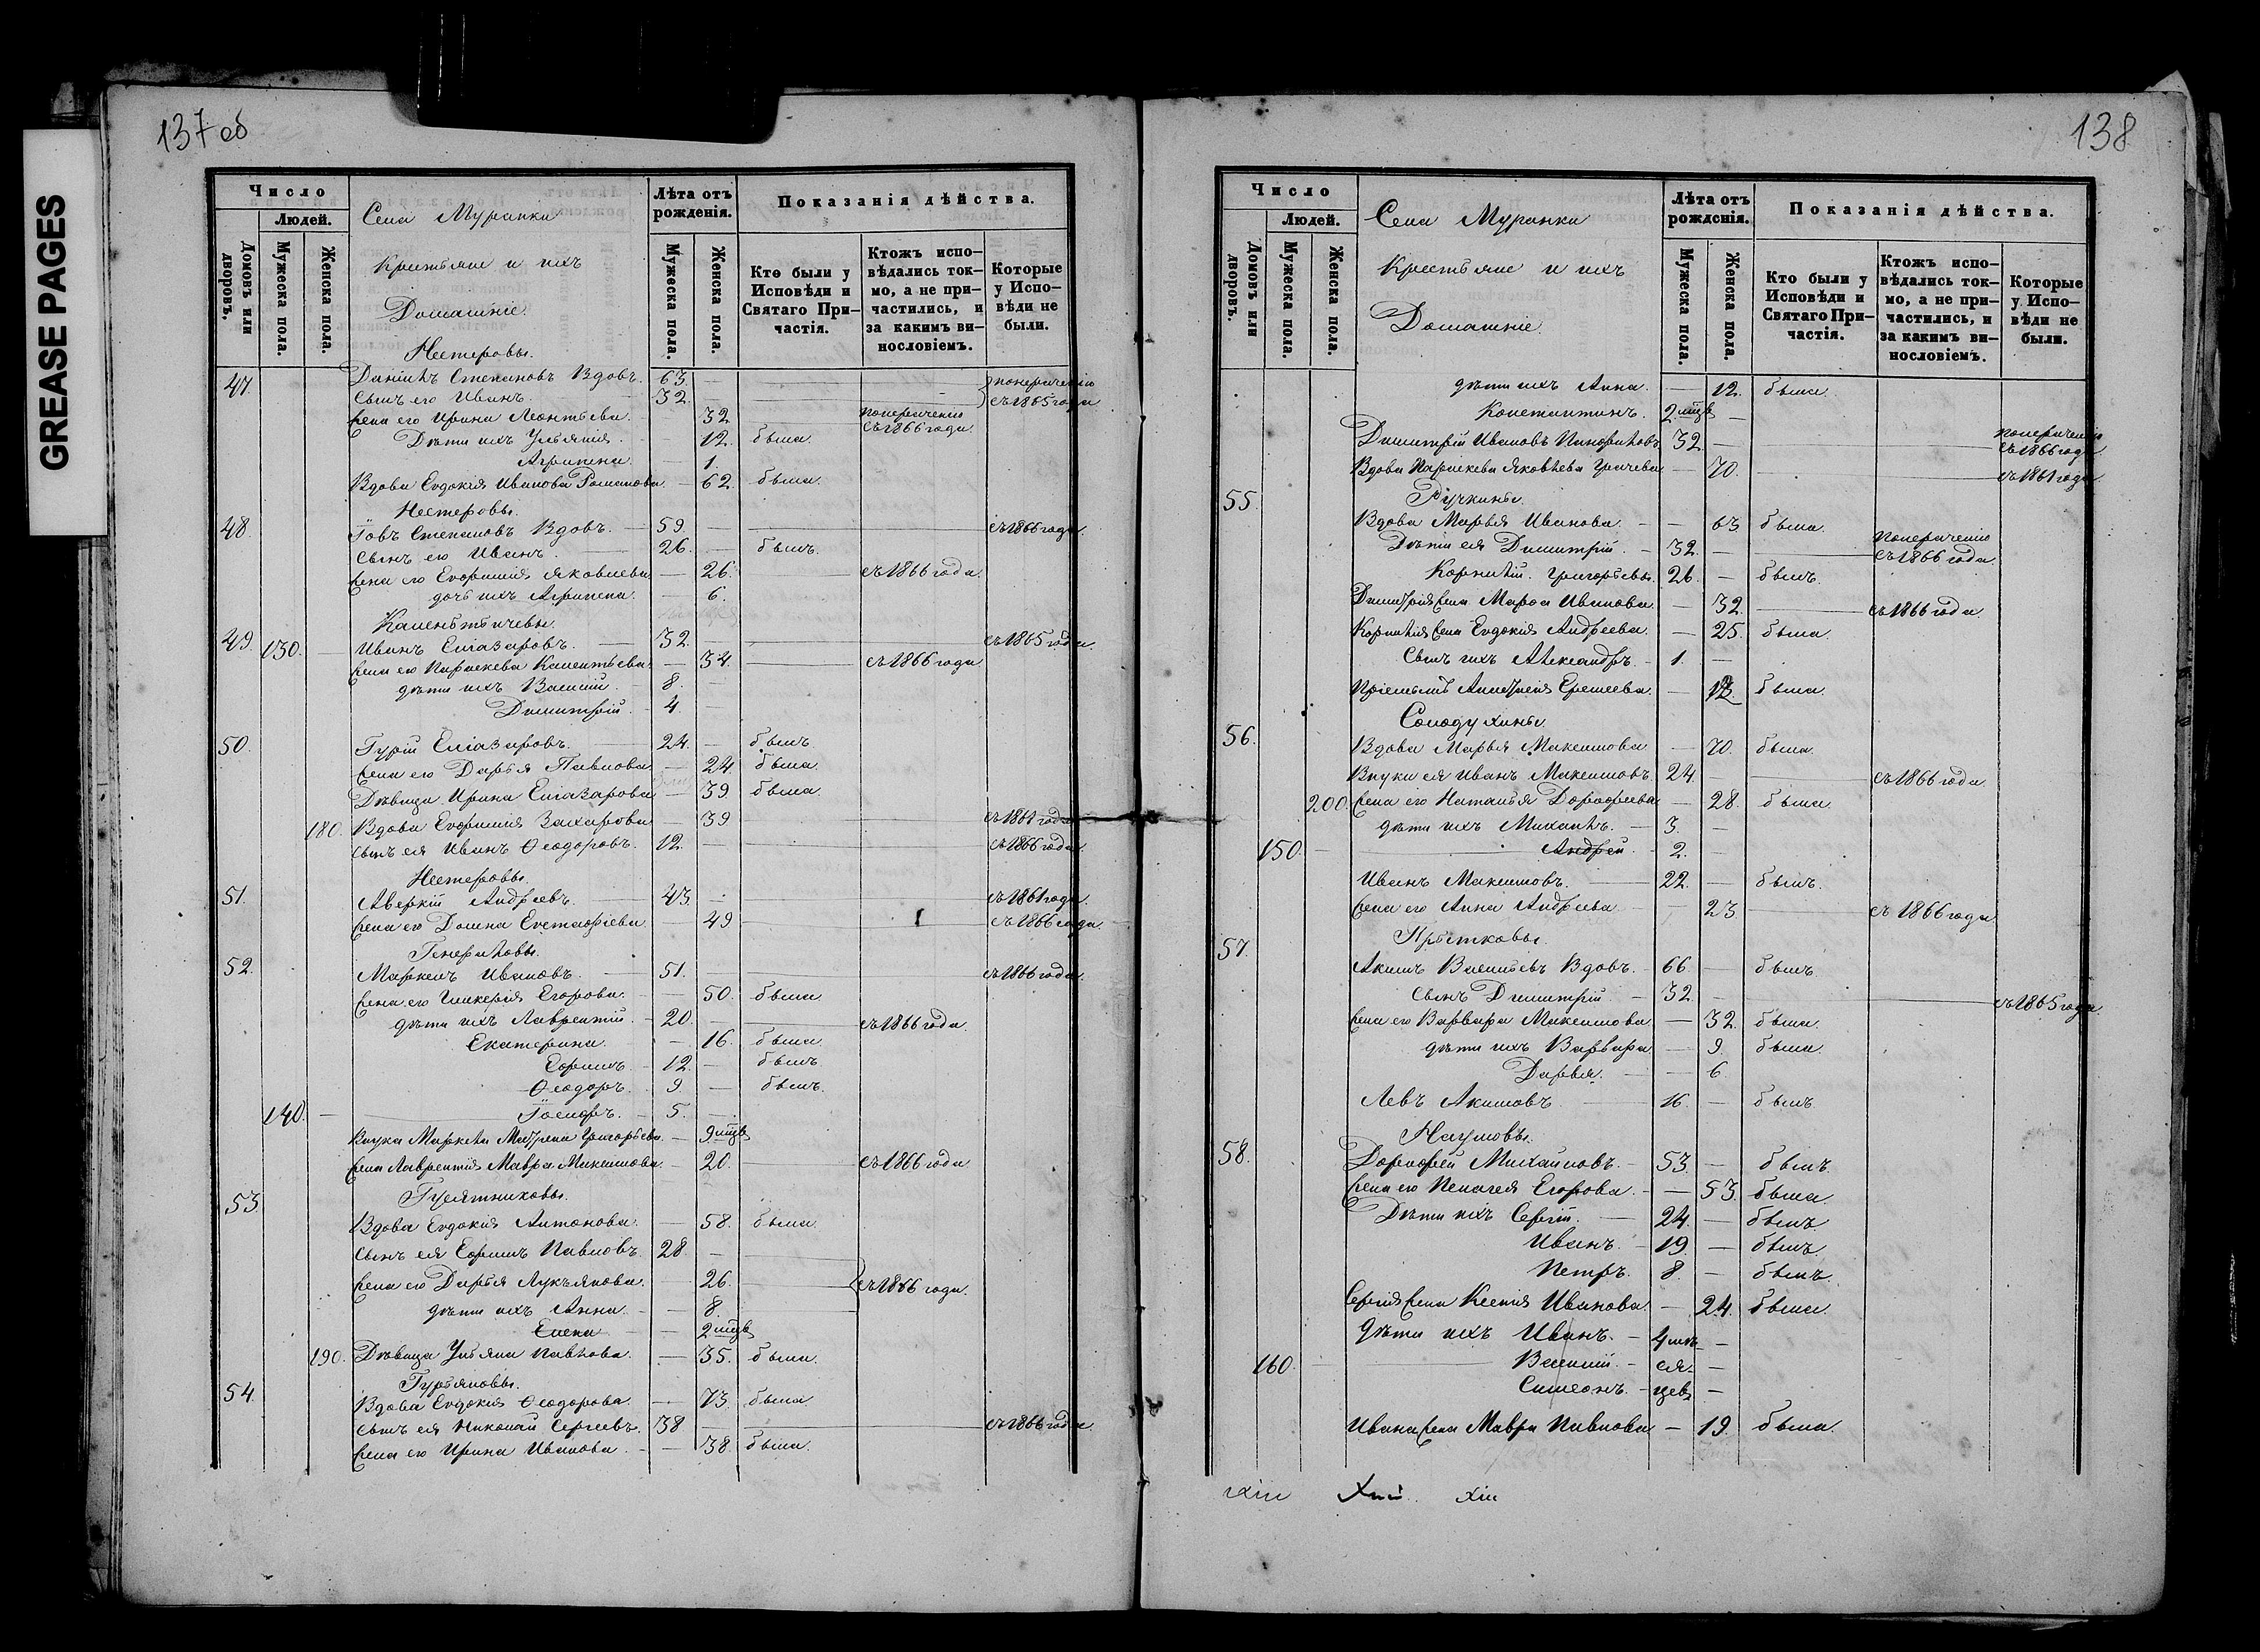 GREASE PAGES
137 об
Число
Людей.
Домовъ или дворовъ.
Мужеска пола.
Женска пола.
Села Муранки
Крестьяне и ихъ
Домашніе.
Лѣта отъ рожденія.
Мужеска пола.
Женска пола.
Показанія дѣйства.
Кто были у Исповѣди и Святаго Причастія.
Ктожъ исповѣдались токмо, а не причастились, и за какимъ винословіемъ.
Которые у Исповѣди не были.
Нестеровы.
47. Даніилъ Степановъ Вдовъ. 63. — понераченію
Сынъ его Иванъ. 32. — съ 1865 года
Жена его Ирина Леонтьева. 32 понераченію съ 1866 года.
Дѣти ихъ Ульянія. 12. была.
Агрипена. 1.
Вдова Евдокія Иванова Романова — 62. была.
Нестеровы.
48. Іовъ Степановъ Вдовъ. — 59. — съ 1866 года.
Сынъ его Иванъ. 26. — былъ.
Жена его Евфимія Яковлева — 26. съ 1866 года.
дочь ихъ Агрипена. — 6.
49. 130. — Иванъ Елиазаровъ. 32. съ 1865 года.
Жена его Параскева Климентьева — 34. съ 1866 года
дѣти ихъ Василій. 8. —
Димитрій. 4. —
50. Гурій Елиазаровъ. 24. — былъ.
Жена его Дарья Павлова — 24. была.
Дѣвица Ирина Елиазарова — 39 была.
180. Вдова Евфимія Захарова — 39 съ 1861 года
Сынъ ея Иванъ Ѳеодоровъ. 12. — съ 1866 года.
Нестеровы.
51. Аверкій Андреевъ. 43. — съ 1861 года.
Жена его Домна Евстафіева — 49 съ 1866 года.
52. Маркелъ Ивановъ. 51. съ 1866 года.
Жена его Гликерія Егорова. — 50. была.
дѣти ихъ Лаврентій. — 20. съ 1866 года.
Екатерина — 16. была.
Ефимъ. — 12. — былъ
Ѳеодоръ. 9. — былъ.
140. — Іосифъ. — 5. —
Внука Маркела Матрена Григорьева. — 9 мцв
Жена Лаврентія Мавра Максимова. — 20. съ 1866 года
Гусятниковы.
53. Вдова Евдокія Антонова. — 58. была.
Сынъ ея Ефимъ Павловъ. 28. —
Жена его Дарья Лукьянова. — 26. съ 1866 года.
дѣти ихъ Анна. — 8.
Елена — 2 мцв
190. Дѣвица Ульяна Павлова. — 35. была.
Гурьяновы.
54. Вдова Евдокія Ѳеодорова. — 73. была.
Сынъ ея Николай Сергеевъ. 38 съ 1866 года.
Жена его Ирина Иванова. — 38. была.
138
Число
Людей.
Домовъ или дворовъ.
Мужеска пола.
Женска пола.
Села Муранки
Крестьяне и ихъ
Домашніе.
Лѣта отъ рожденія.
Мужеска пола.
Женска пола.
Показанія дѣйства.
Кто были у Исповѣди и Святаго Причастія.
Ктожъ исповѣдались токмо, а не причастились, и за какимъ винословіемъ.
Которые у Исповѣди не были.
дѣти ихъ Анна. — 12. была.
Константинъ. 2 мцв —
Димитрій Ивановъ 32 — понераченію съ 1866 года.
Вдова Параскева Яковлева — 70. съ 1861 года.
55. Ручкины.
Вдова Марья Иванова. — 63 была.
Дѣти ея Димитрій. — 32. — понераченію съ 1866 года.
Корнилій. Григорьевы. 26. — былъ.
Димитрія Жена Марфа Иванова — 32. съ 1866 года.
Корнилія Жена Евдокія Андреева. — 25. была.
Сынъ ихъ Александръ. — 1. —
Еремеева. — была.
Солодухины.
56. Вдова Марья Максимова — 70. была.
Внуки ея Иванъ Максимовъ. 24. — съ 1866 года
200. Жена его Наталья Дорофеева — 28. была.
дѣти ихъ Михаилъ. — 3. —
150. — Андрей 2.
Иванъ Максимовъ. 22. — былъ.
Жена его Анна Андреева — 23. съ 1866 года
57. Акимъ Васильевъ Вдовъ. — 66. — былъ.
Сынъ Димитрій. — 32. — съ 1865 года.
Жена его Варвара Максимова — 32. была.
дѣти ихъ Варвара — 9. была.
Дарья. — 6.
Левъ Акимовъ. 16. — былъ.
Наумовы.
58. Дорофей Михайловъ. — 53. — былъ.
Жена его Пелагея Егорова. — 53. была
Дѣти ихъ Сергій. — 24. — былъ
Иванъ. — 19. — былъ.
Петръ. 8. — былъ.
Сергія Жена Ксенія Иванова — 24. была.
Дѣти ихъ Иванъ. — 4 мѣ —
160. Василій. — ся- —
Симеонъ. — цев —
Ивана Жена Мавра Павлова — 19. была.